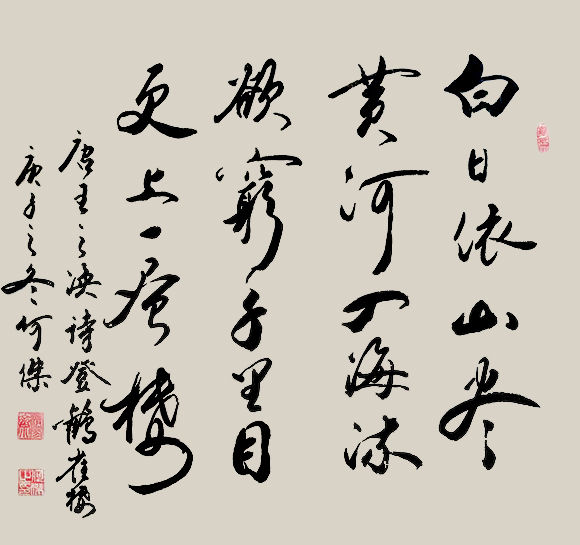 白日依山尽
黄河入海流
欲窮千里目
更上一層楼
唐王之涣詩登鶴雀楼
庚子之冬何傑